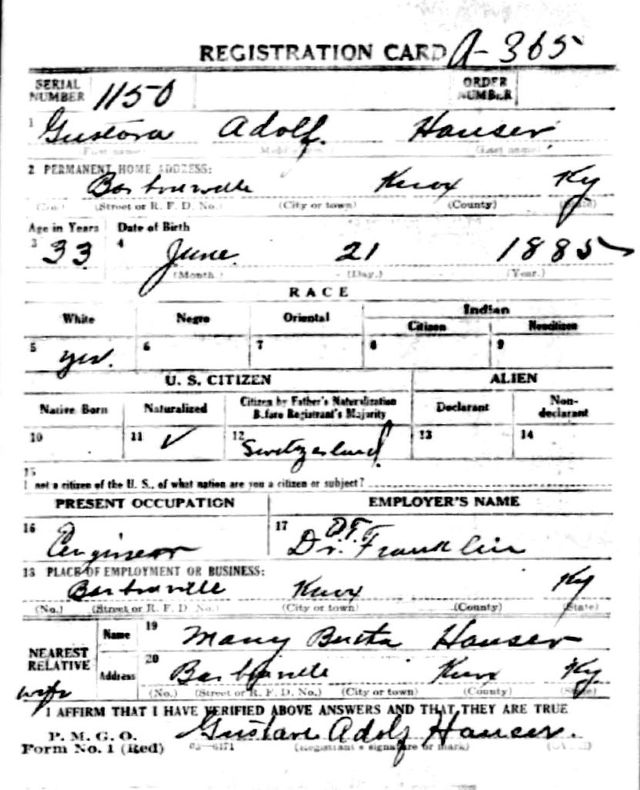 REGISTRATION CARD A-365
SERIAL NUMBER 1150 ORDER NUMBER
1 Gustova Adolf Hauser
(First name) (Middle name) (Last name)
2 PERMANENT HOME ADDRESS:
Barbourville Knox Ky
(No.) (Street or R. F. D. No.) (City or town) (County) (State)
Age in Years Date of Birth
3 33 4 June 21 1885
(Month.) (Day.) (Year.)
RACE
White Negro Oriental Indian
Citizen Noncitizen
5 yes. 6 7 8 9
U. S. CITIZEN ALIEN
Native Born Naturalized Citizen by Father's Naturalization Before Registrant's Majority Declarant Non-declarant
10 11 ✓ 12 Switzerland 13 14
15
If not a citizen of the U. S., of what nation are you a citizen or subject?
PRESENT OCCUPATION EMPLOYER'S NAME
16 Engineer 17 Dr. Franklin
18 PLACE OF EMPLOYMENT OR BUSINESS:
Barbourville Knox Ky
(No.) (Street or R. F. D. No.) (City or town) (County) (State)
NEAREST RELATIVE Name 19 Mary Hauser
wife Address 20 Barbourville Knox Ky
(No.) (Street or R. F. D. No.) (City or town) (County) (State)
I AFFIRM THAT I HAVE VERIFIED ABOVE ANSWERS AND THAT THEY ARE TRUE
P. M. G. O.
Form No. 1 (Red) 03—6171 Gustave Adolf Hauser.
(Registrant's signature or mark) (OVER)